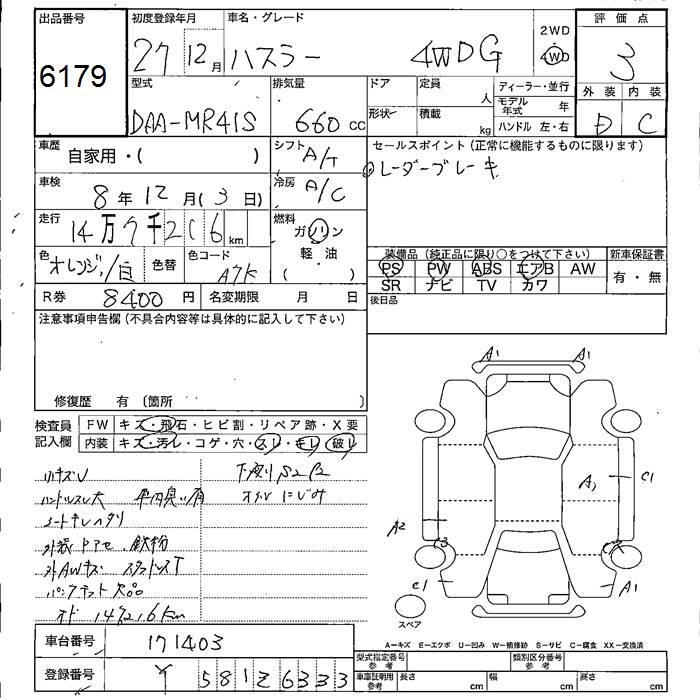 出品番号 初度登録年月 車名・グレード 2WD 評価点
6179 27 12月 ハスラー 4WD G 4WD 3
型式 排気量 ドア 定員 人 ディーラー・並行 外装 内装
DAA-MR41S 660cc 形状 積載 kg モデル年式 年 D C
ハンドル 左・右
車歴 自家用・( ) シフト A/T セールスポイント (正常に機能するものに限ります)
レーダーブレーキ
車検 8年12月(3日) 冷房 A/C
走行 14万7千2 6km 燃料 ガソリン
( 軽・油 )
色 オレンジ/白 色替 色コード A7K
装備品 (純正品に限り○をつけて下さい) 新車保証書
PS PW ABS エアB AW 有・無
SR ナビ TV カワ
R券 8400円 名変期限 月 日 後日品
注意事項申告欄 (不具合内容等は具体的に記入して下さい)
修復歴 有 (箇所 )
検査員記入欄 FW キズ・飛石・ヒビ割・リペア跡・X要
内装 キズ・汚レ・コゲ・穴・スレ・キレ・破レ
小キズU 下廻りS2
ハンドルスレ大 車内臭い有 オイルにじみ
シートキレヘタリ
外装 鉄粉
外AWキズ スタッドレスT
パンクキット欠品
A1 A1
A1 C1
A2
C1 A1
スペア
A-キズ E-エクボ U-凹み W-補修跡 S-サビ C-腐食 XX-交換済
車台番号 171403
型式指定番号 参考 類別区分番号 参考
登録番号 581 6333
車庫証明用 参考 長さ cm 幅 cm 高さ cm